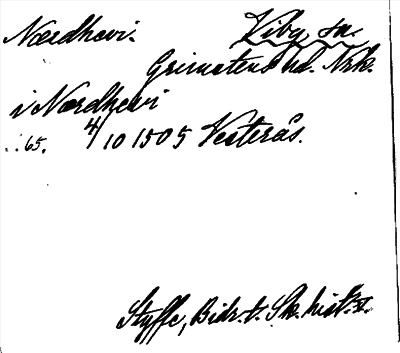 Nærdhevi. Viby sn.
Grimstens hd. Nrk.
i Nærdhevi
..65. 4/10 1505 Vesterås.
Styffe, Bidr. t. Sk. hist. V.